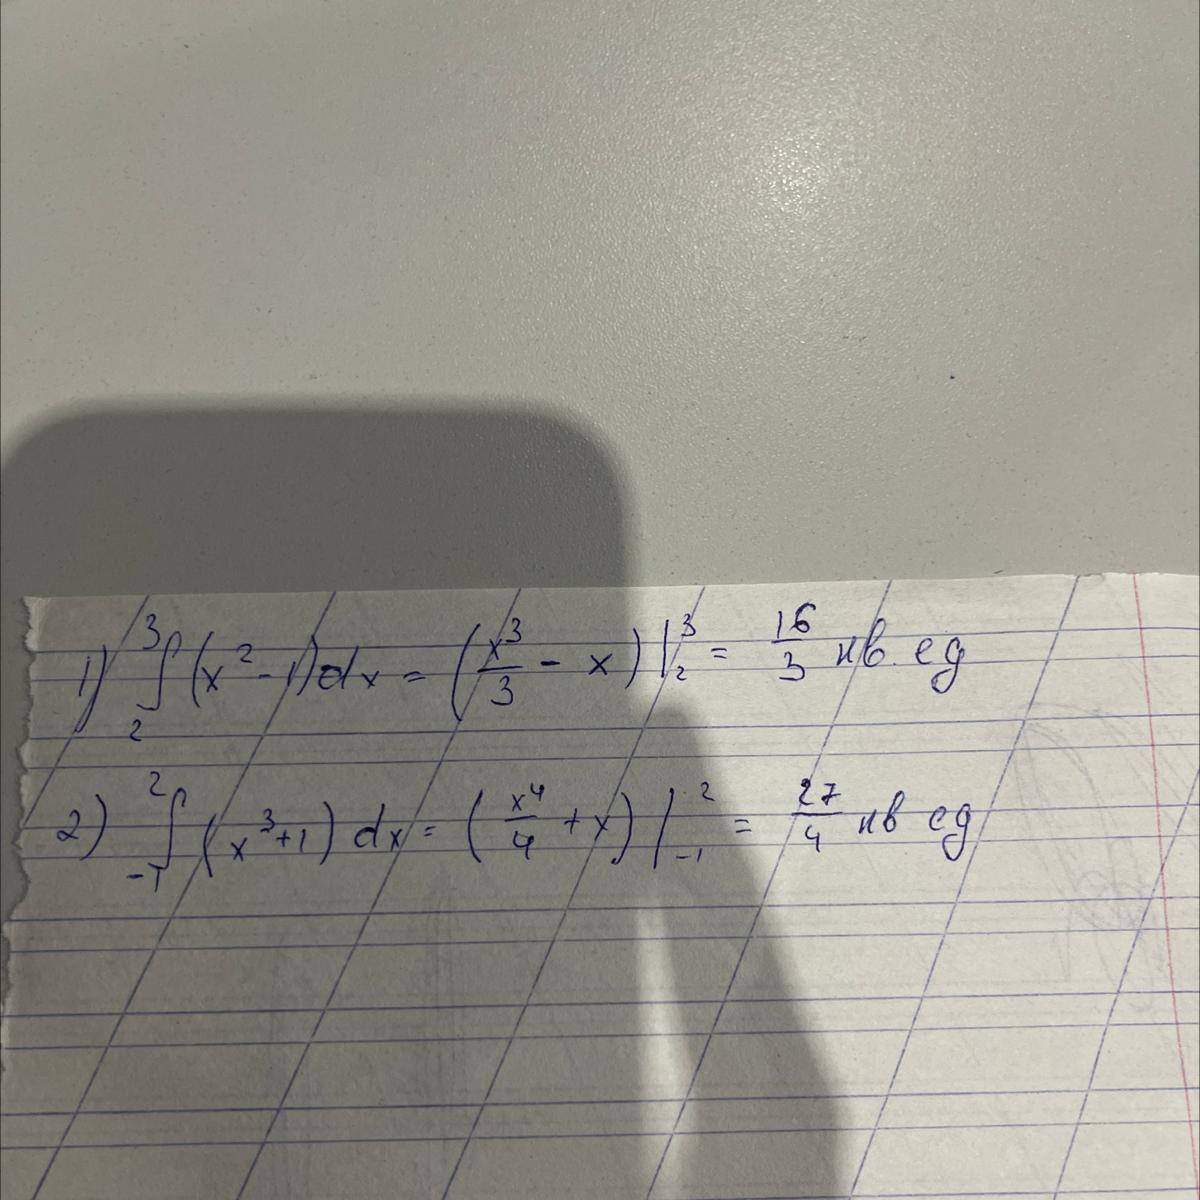 1) ∫₂³ (x² - 1)dx = (x³/3 - x)|₂³ = 16/3 кв. ед
2) ∫₋₁² (x³+1) dx = (x⁴/4 + x)|₋₁² = 27/4 кв ед